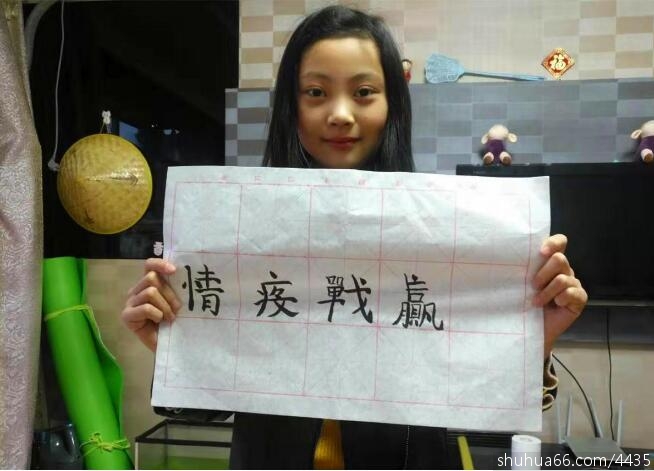 福
贏戰疫情
shuhua66.com/4435